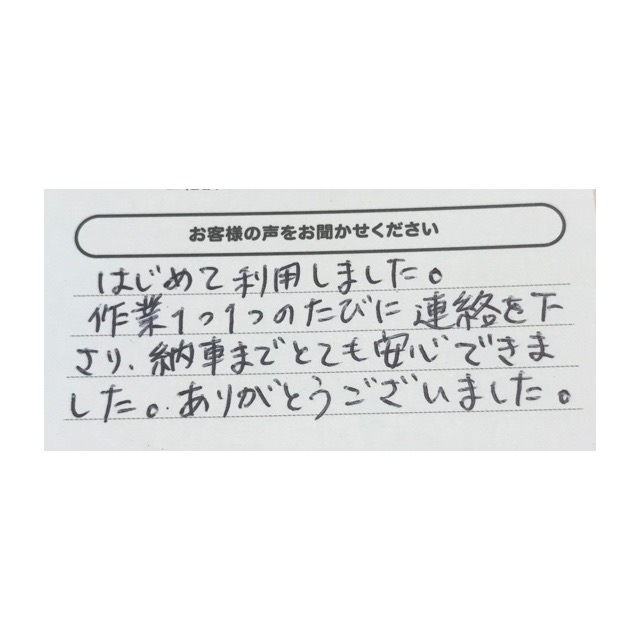 お客様の声をお聞かせください
はじめて利用しました。
作業1つ1つのたびに連絡を下
さり、納車までとても安心できま
した。ありがとうございました。